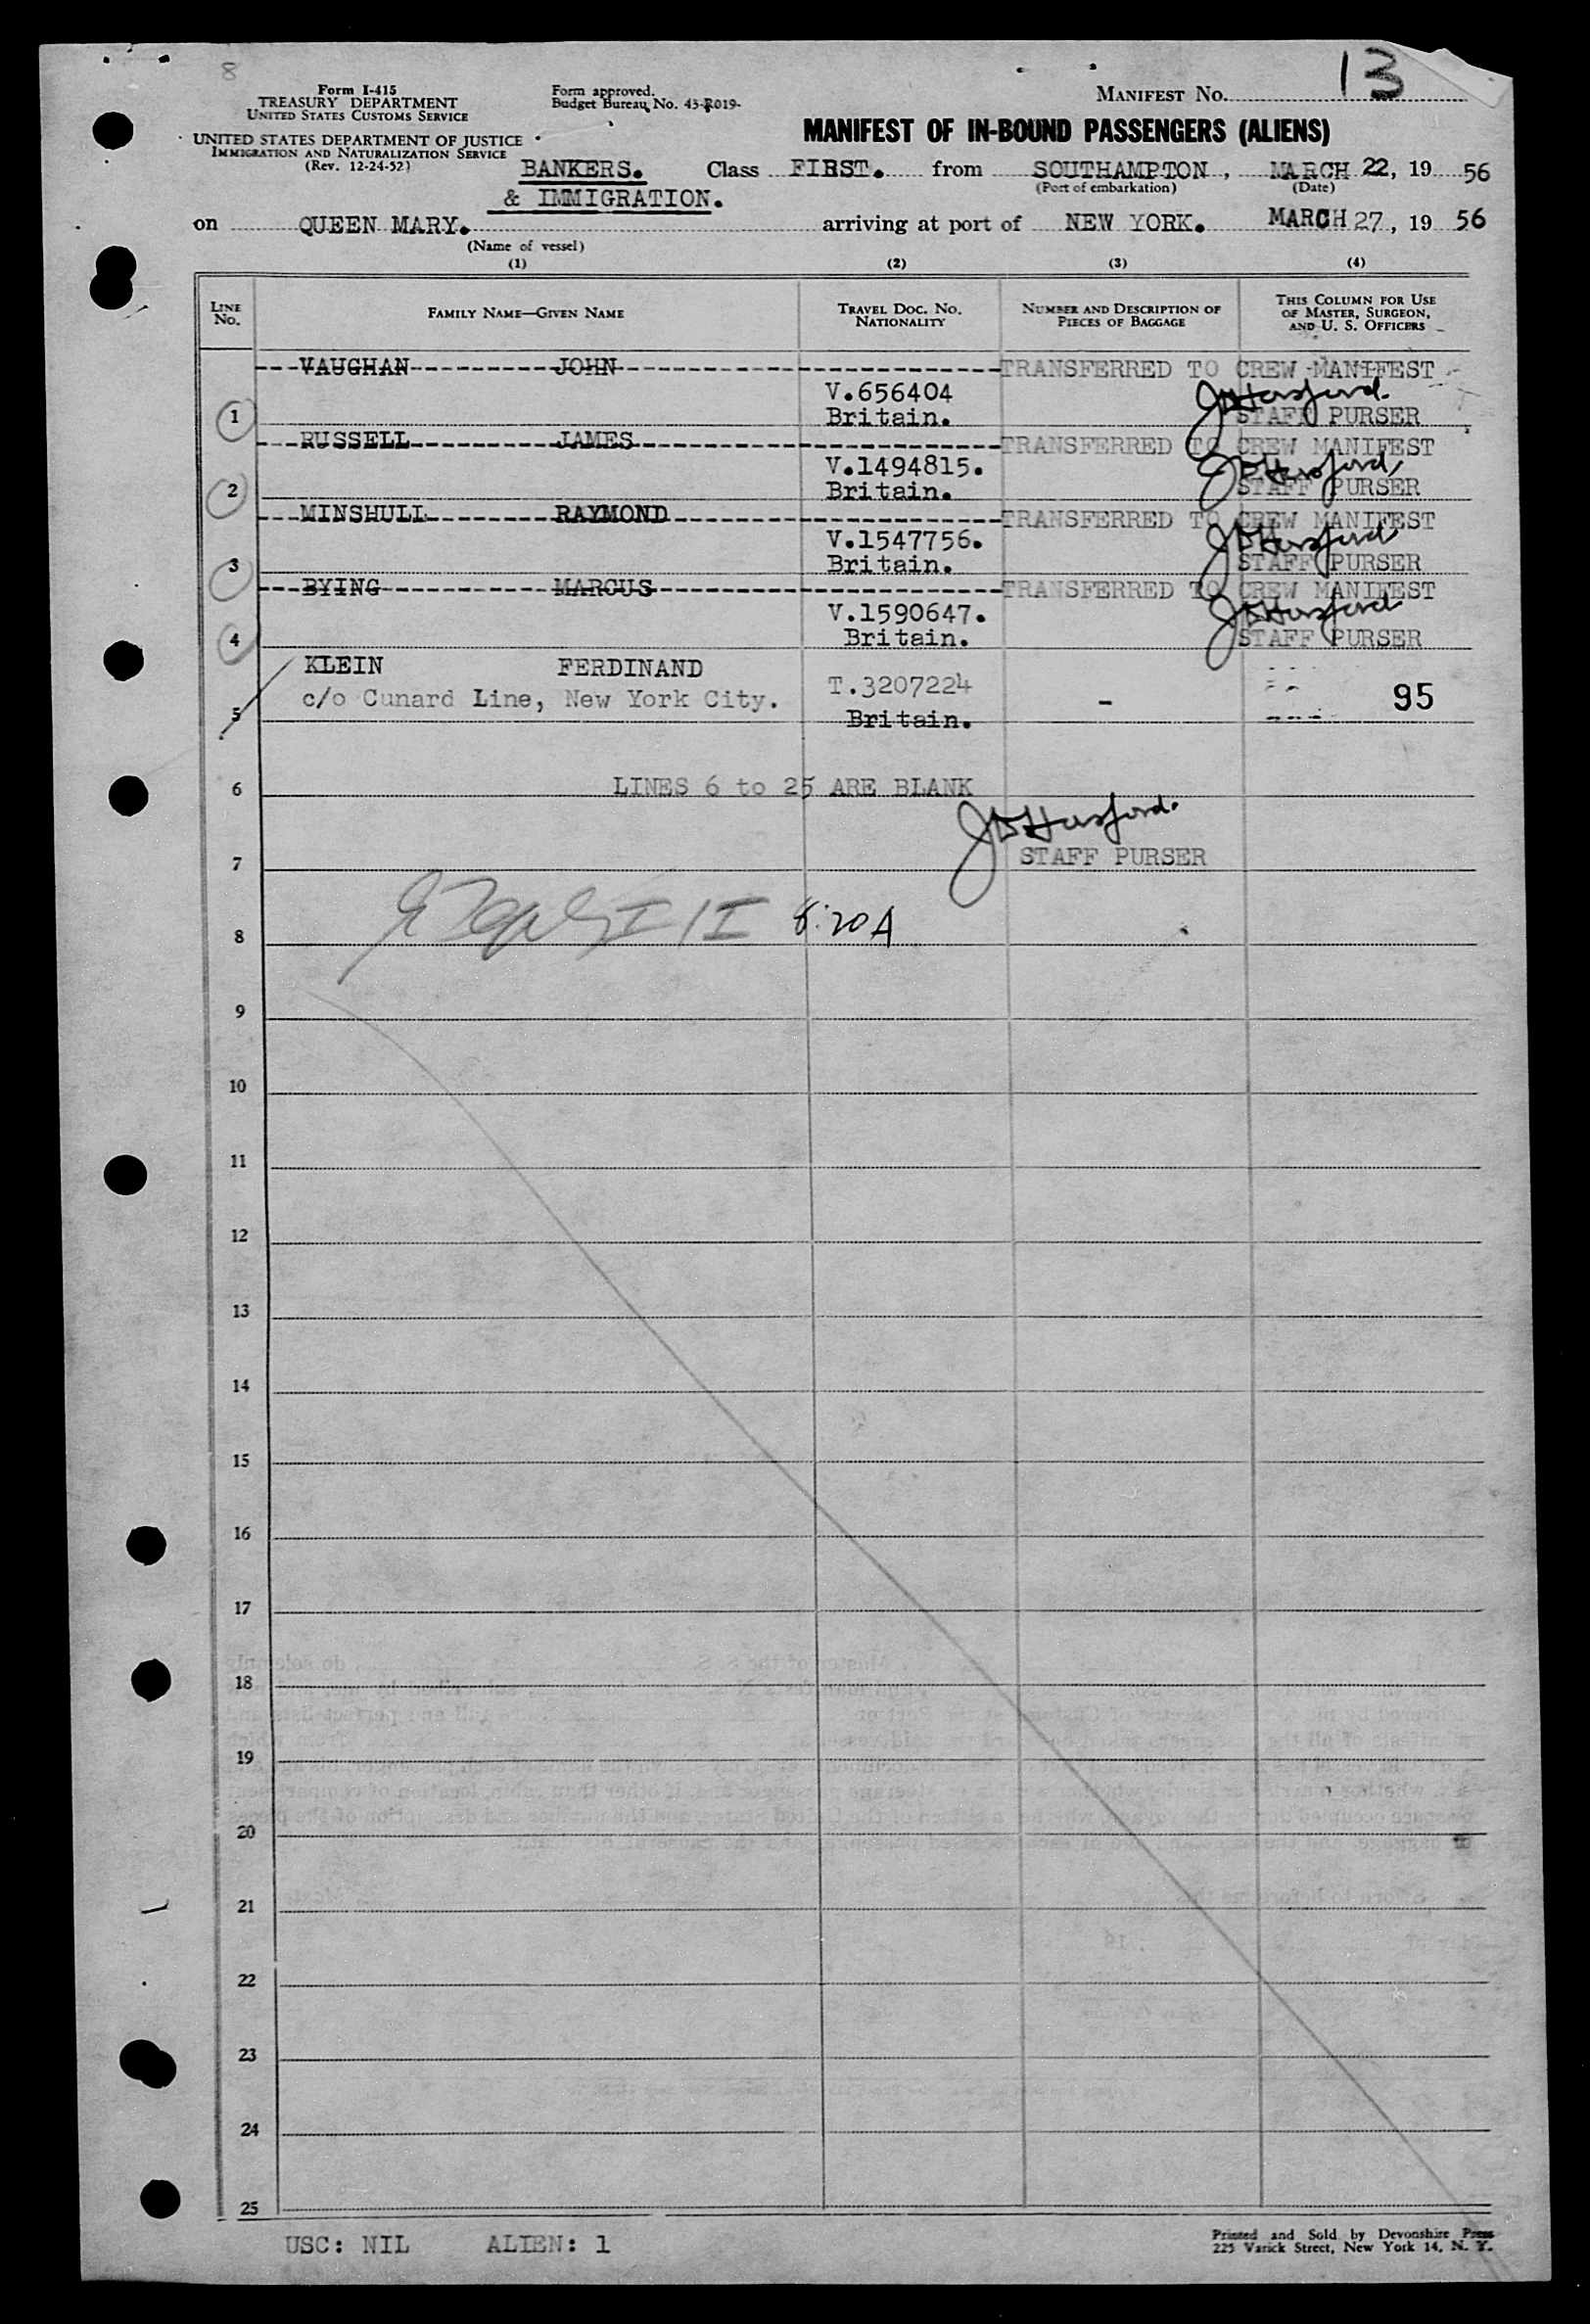 8
13
Form I-415
TREASURY DEPARTMENT
UNITED STATES CUSTOMS SERVICE
UNITED STATES DEPARTMENT OF JUSTICE
IMMIGRATION AND NATURALIZATION SERVICE
(Rev. 12-24-52)
Form approved.
Budget Bureau No. 43-R019-
MANIFEST No.
MANIFEST OF IN-BOUND PASSENGERS (ALIENS)
BANKERS. Class FIRST. from SOUTHAMPTON, MARCH 22, 19 56
(Port of embarkation) (Date)
& IMMIGRATION.
on QUEEN MARY. arriving at port of NEW YORK. MARCH 27, 19 56
(Name of vessel)
(1) (2) (3) (4)
LINE No. FAMILY NAME—GIVEN NAME TRAVEL DOC. No. NATIONALITY NUMBER AND DESCRIPTION OF PIECES OF BAGGAGE THIS COLUMN FOR USE OF MASTER, SURGEON, AND U. S. OFFICERS
VAUGHAN JOHN TRANSFERRED TO CREW MANIFEST
V.656404
1 Britain. STAFF PURSER
RUSSELL JAMES TRANSFERRED TO CREW MANIFEST
V.1494815.
2 Britain. STAFF PURSER
MINSHULL RAYMOND TRANSFERRED TO CREW MANIFEST
V.1547756.
3 Britain. STAFF PURSER
BYING MARCUS TRANSFERRED TO CREW MANIFEST
V.1590647.
4 Britain. STAFF PURSER
KLEIN FERDINAND
c/o Cunard Line, New York City. T.3207224 - 95
5 Britain.
6 LINES 6 to 25 ARE BLANK
7 STAFF PURSER
8 8:20A
9
10
11
12
13
14
15
16
17
18
19
20
21
22
23
24
25
USC: NIL ALIEN: 1
Printed and Sold by Devonshire Press
225 Varick Street, New York 14, N. Y.